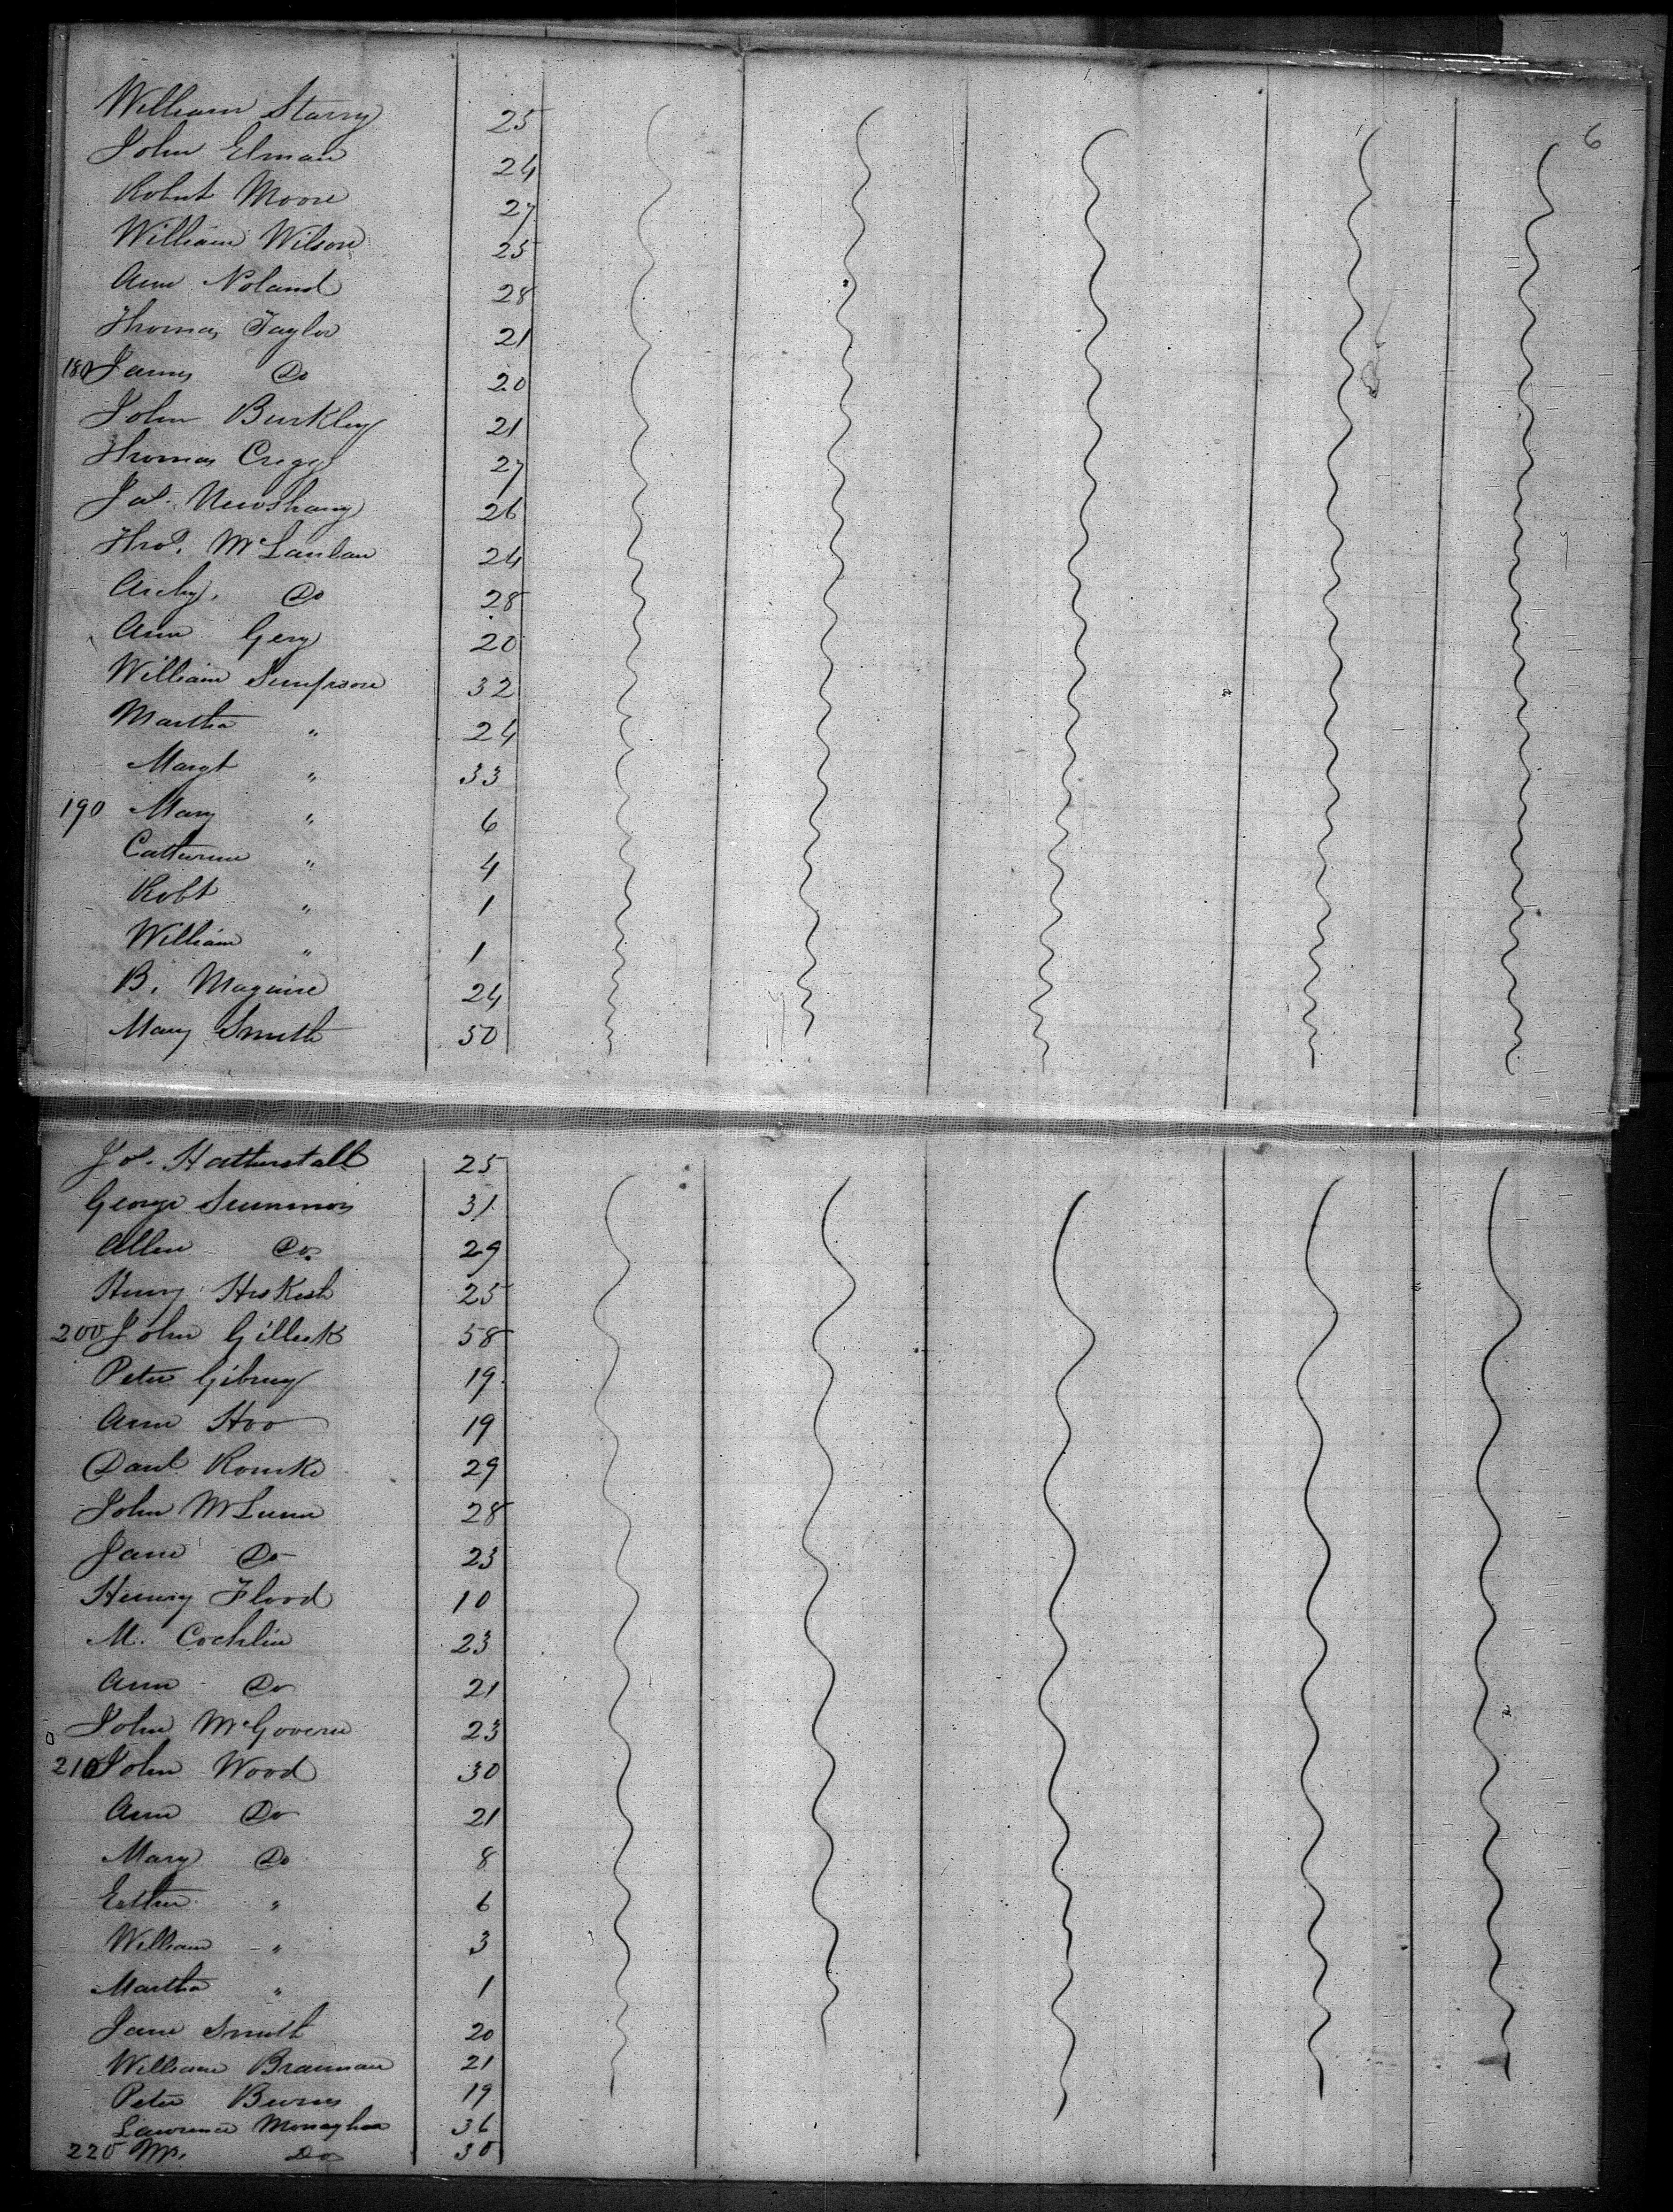 6
William Starry 25
John Elman 24
Robert Moore 27
William Wilson 25
Ann Noland 28
Thomas Taylor 21
180 James Do 20
John Burkley 21
Thomas Cregg 27
Jas. Newshany 26
Thos. McLanlan 24
Archy. Do 28
Ann Gery 20
William Simpson 32
Martha " 24
Margt " 33
190 Mary " 6
Catherine " 4
Robt " 1
William " 1
B. Maguire 24
Mary Smith 50
Jos. Hatherstall 25
George Summons 31
Allen Do 29
Henry Hesketh 25
200 John Gilleck 58
Peter Gibney 19
Ann Hoo 19
Danl Rourke 29
John McLunn 28
Jane Do 23
Henry Flood 10
M. Cochlin 23
Ann Do 21
John McGovern 23
210 John Wood 30
Ann Do 21
Mary Do 8
Esther " 6
William " 3
Martha " 1
Jane Smith 20
William Brannan 21
Peter Burns 19
Lawrence Monaghan 36
220 Mrs. Do 30